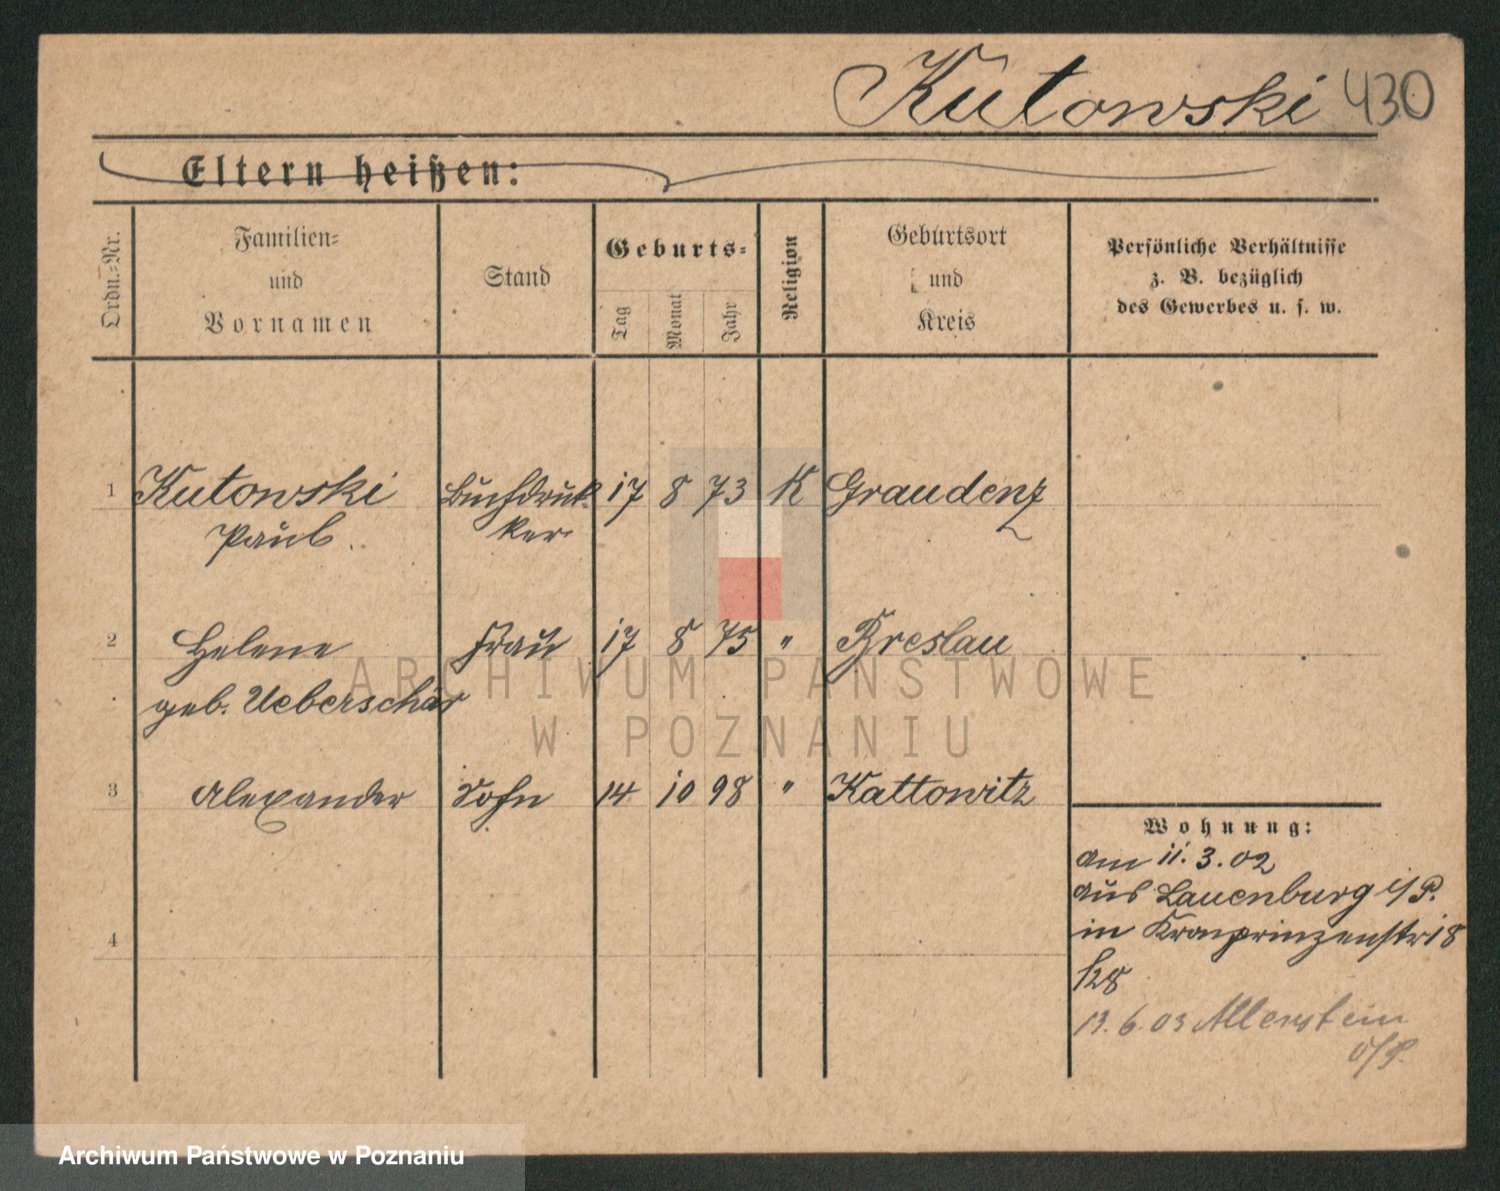 Kutowski 430
Eltern heißen:
Ordn.-Nr.
Familien-
und
Vornamen
Stand
Geburts-
Tag
Monat
Jahr
Religion
Geburtsort
und
Kreis
Persönliche Verhältnisse
z. B. bezüglich
des Gewerbes u. s. w.
1 Kutowski Buchdruk- 17 8 73 K Graudenz
Paul ker
2 Helene Frau 17 8 75 " Breslau
geb. Ueberschär
3 Alexander Sohn 14 10 98 " Kattowitz
4
Wohnung:
am 11. 3. 02
aus Lauenburg i/P.
in Kronprinzenstr 18
13. 6. 03 Allenstein
o/P.
ARCHIWUM PAŃSTWOWE
W POZNANIU
Archiwum Państwowe w Poznaniu